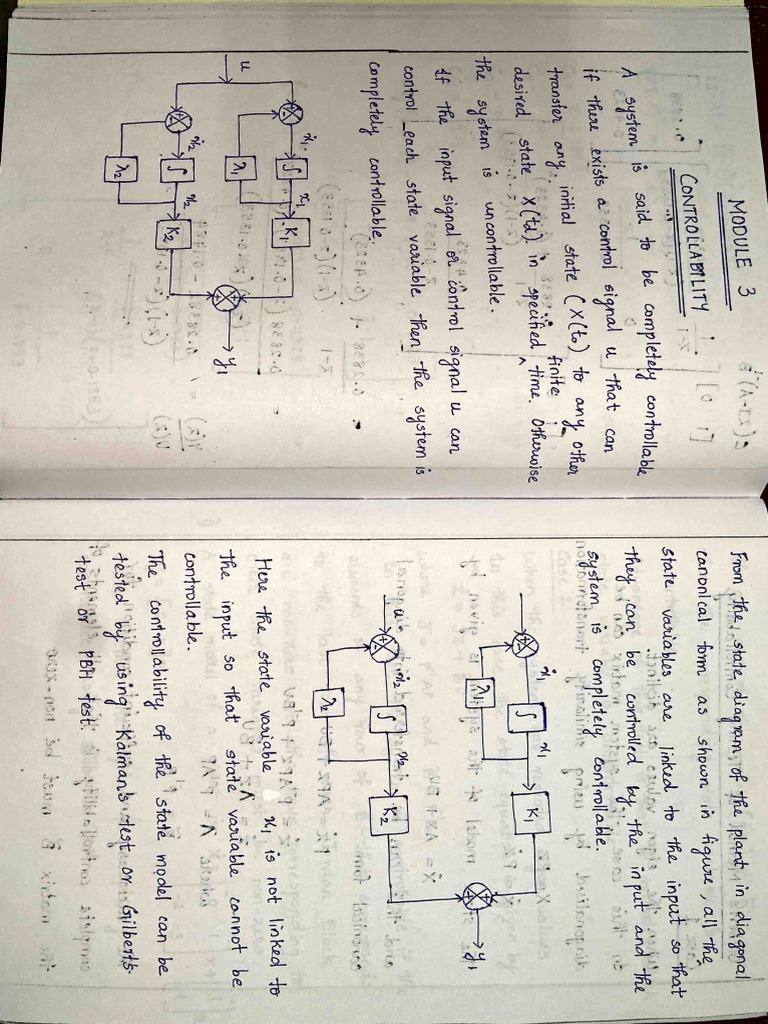 MODULE 3
CONTROLLABILITY
A system is said to be completely controllable
if there exists a control signal u that can
transfer any initial state (X(t₀) to any other
desired state X(td) in specified finite time. Otherwise
the system is uncontrollable.
If the input signal or control signal u can
control each state variable then the system is
completely controllable.
ẋ₁ x₁
∫ K₁
λ₁
u
ẋ₂ x₂
∫ K₂
λ₂
y₁
From the state diagram of the plant in diagonal
canonical form as shown in figure, all the
state variables are linked to the input so that
they can be controlled by the input and the
system is completely controllable.
ẋ₁ x₁
∫ K₁
λ₁
y₁
u ẋ₂ x₂
∫ K₂
λ₂
Here the state variable x₁ is not linked to
the input so that state variable cannot be
controllable.
The controllability of the state model can be
tested by using Kalman's test or Gilbert's
test or PBH test.